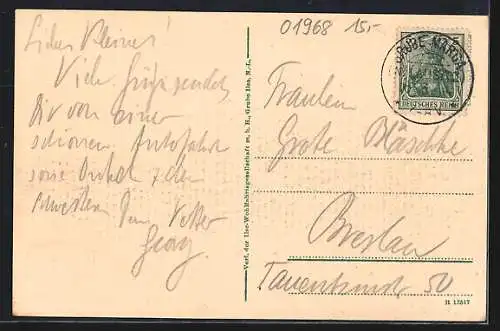 01968 15,-
Liebes Kleines!
Viele Grüße sendet
Dir von einer
schönen Autofahrt
sowie Onkel
Dein Vetter
Georg
Verl. der Ilse-Wohlfahrtsgesellschaft m. b. H., Grube Ilse, N.-L.
GRUBE MARGA
DEUTSCHES REICH
Fräulein
Grete Bläschke
Breslau
Tauentzienstr 50
H 13517